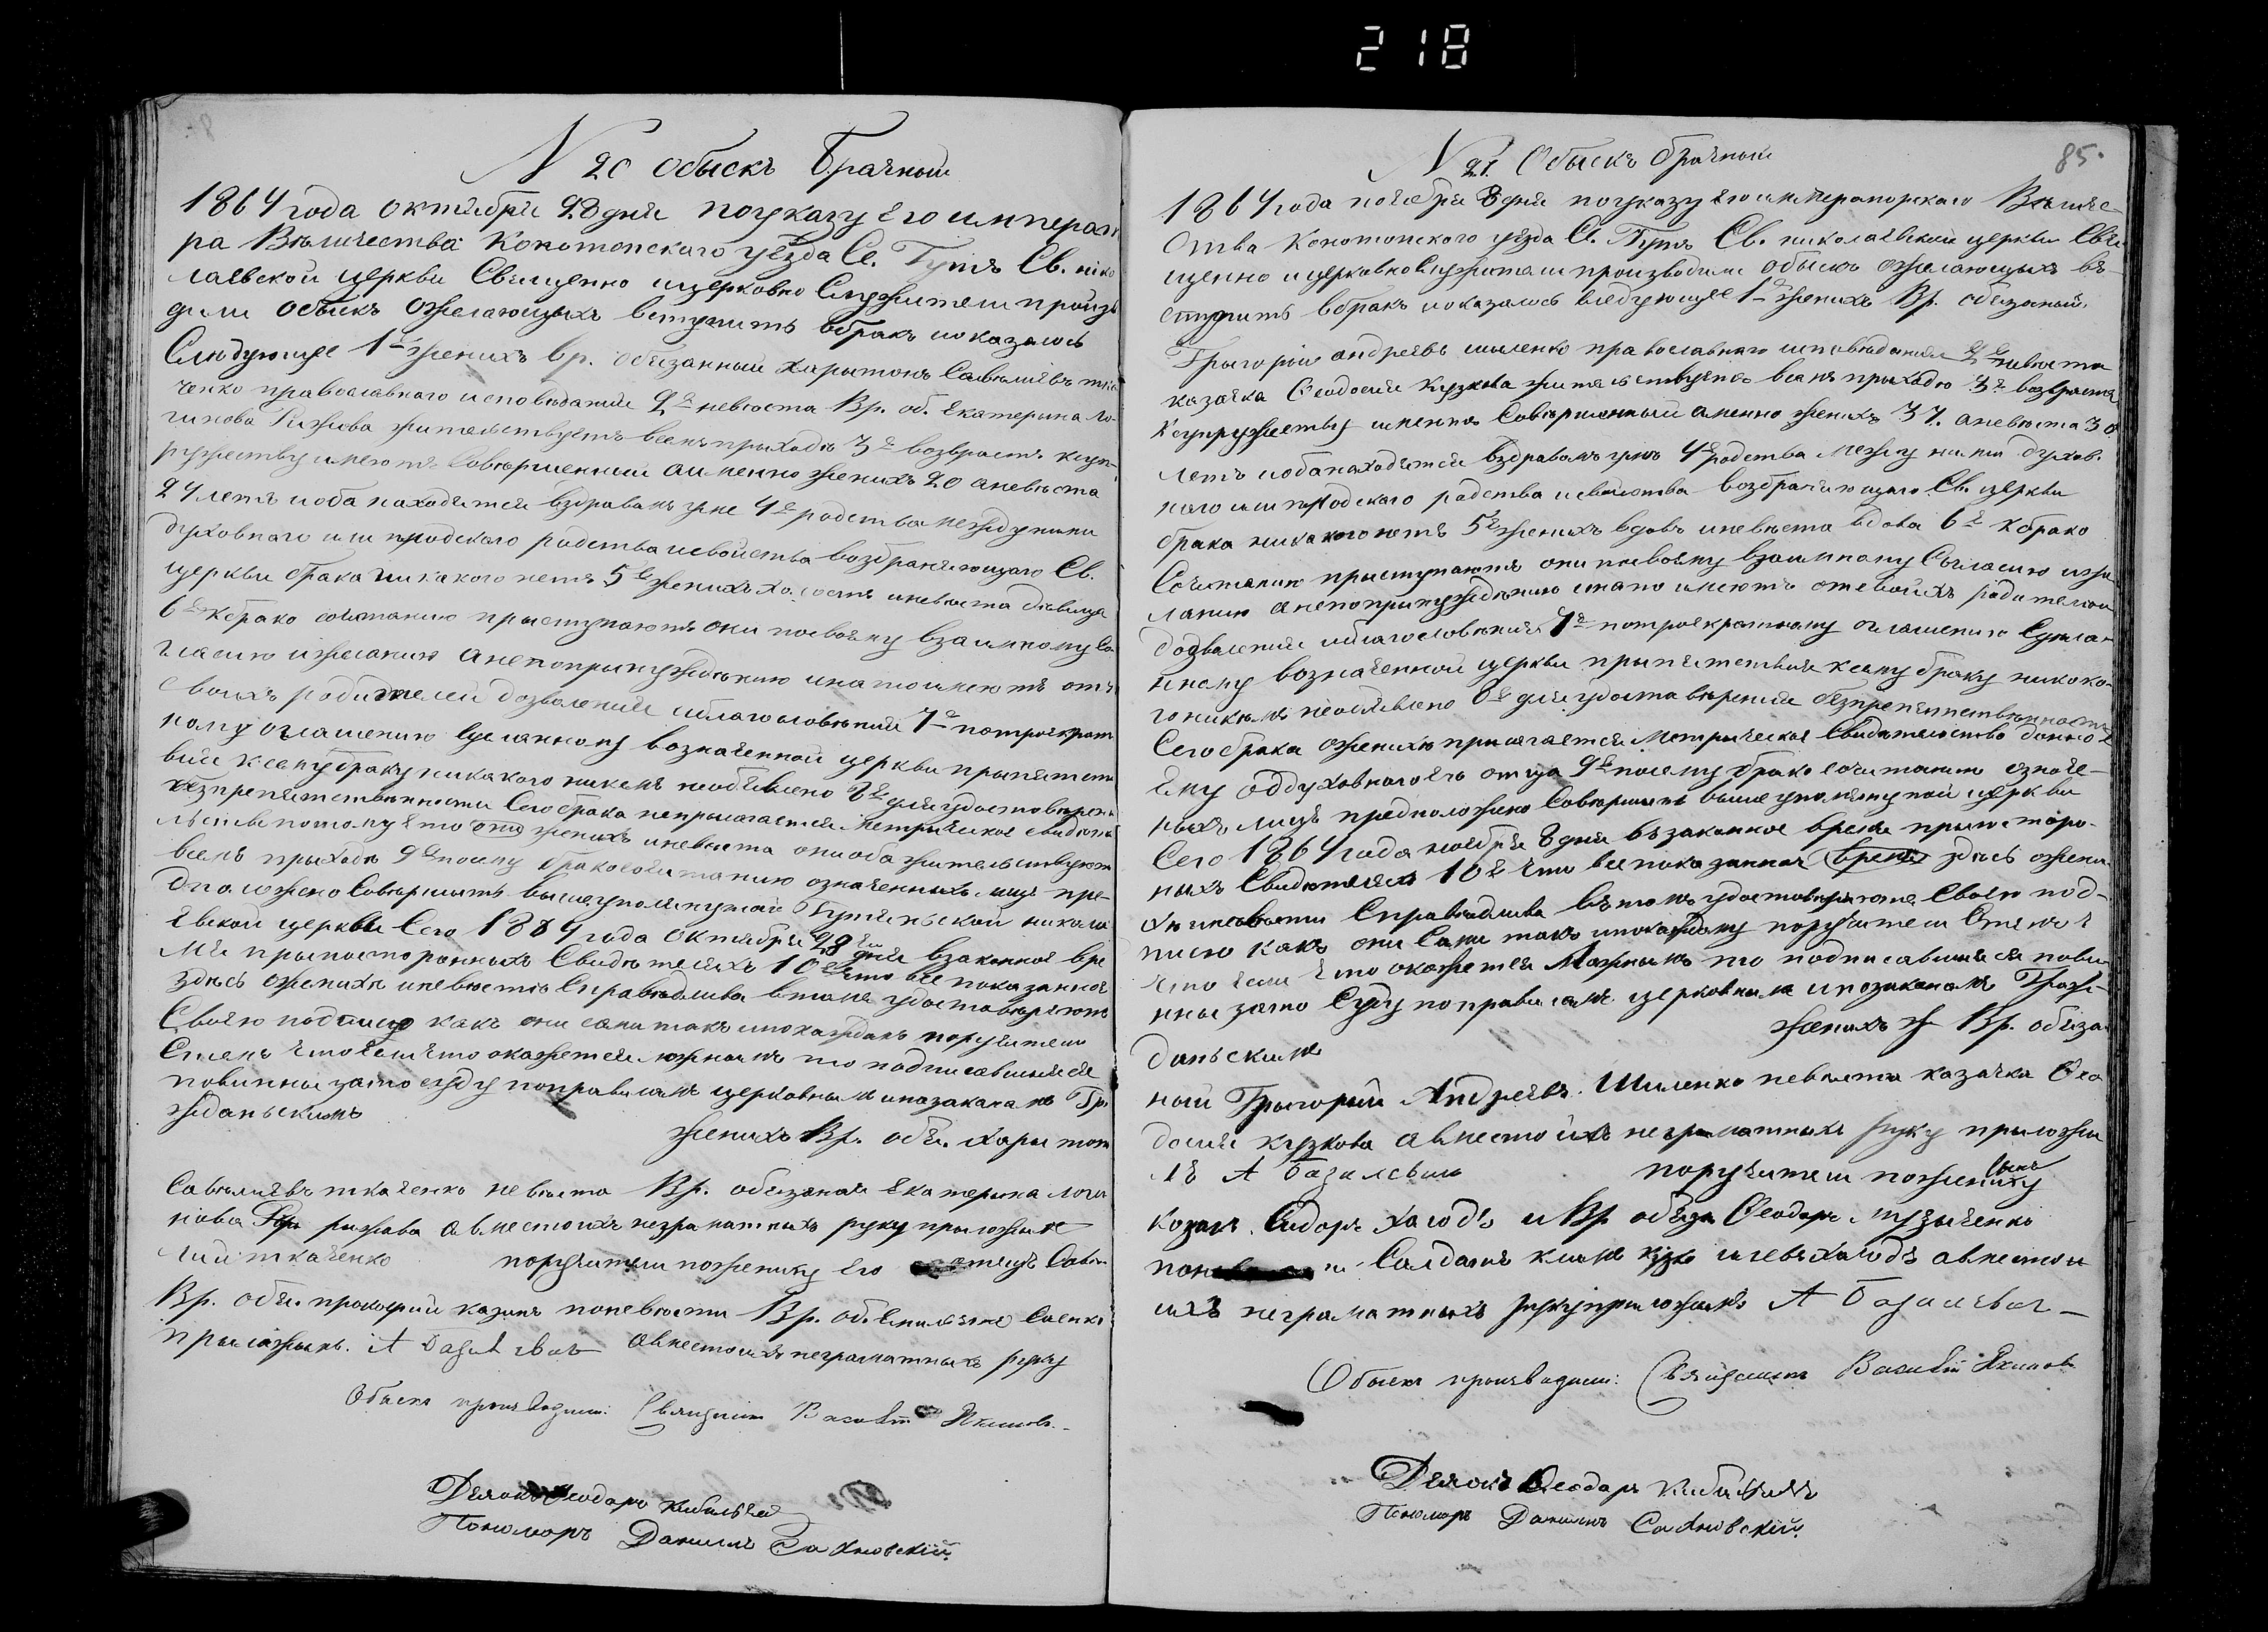 218
N 20 Обыскъ Брачный
1864 года октября 28 дня по указу Его император
ра Величества Конотопскаго уѣзда Се. Гутъ Св. нико
лаевской церкви Священно ицерковно Служители произв
дили обыскъ ожелающихъ вступить вбракъ ноказалось
Слѣдующее 1е женихъ вр. обязанный Харитонъ Савелиевъ тка
ченко православнаго исповѣдания 2е невѣста Вр. об. Екатерина ло
гинова Рижова жительствуетъ всемъ приходѣ 3е возврастъ ксуп
ружеству имеютъ Совѣршенний аименно женихъ 20 аневѣста
24 летъ иоба находятся вздравомъ уме 4е родства междуними
духовнаго или плодскаго родства исвойства возбраняющаго Св.
церкви брака никакого нетъ 5е женихъ холостъ иневѣста дѣвица
6е Кбрако сочитанию приступаютъ они посвоему взаимному Со
гласию ижеланию анепопринуждѣнию инатоимеютъ отъ
своихъ родителей дозволения иблагословѣния 7е потроекрат
ному оглашению Сделанному возначенной церкви препятст
вия ксемубраку никакого никемъ необявлено 8е дляудостовѣрен
безпрепятственности Сегобрака неприлагается Метрическое свидетел
льство потомучто они женихъ иневѣста ониоба жительствуют
всемъ приходѣ 9е посему бракосочитанию означенныхъ лицъ пре
дположено Совѣршить вышеупомянутой Гутянской никола
евской церкви Сего 1864 года октября 28 дня взаконное вре
мя припостороннихъ Свидѣтеляхъ 10е что все показанное
здѣсь оженихѣ иневѣстѣ Справѣдливо втомъ удостовѣряютъ
Своею подписю какъ они сами такъ ипокаждомъ поручители
Стемъ чтоеслičто окажется ложнымъ то подписавшияся
повинны зато суду поправиламъ церковнымъ ипозаконамъ Гра
жданскимъ
женихъ Вр. обя. Харитон
Савелиевъ ткаченко невѣста Вр. обязаная Екатерина логи
нова рижова авместоихъ неграматныхъ руку приложи
лий ткаченко поручители поженику Его отецъ Саве
Вр. обя. прокофий казимъ поневѣсти Вр. об. Емилиянъ Саенко
авместоихъ неграматныхъ руку
приложилъ. А Базилевич
Обыскъ производили: Священникъ Василий Якимовъ
Дячокъ Феодоръ
Пономаръ Даниилъ Сахновскій
85.
N 21 Обыскъ брачный
1864 года ноября 8 дня поуказу Его императорскаго Величе
Ства Конотопского уѣзда Се. Гутъ Св. николаевской церкви Свя
щенно ицерковно Служители производили обыскъ ожелающихъ въ
ступить вбракъ ноказалось вледующее 1е женихъ Вр. обязаный
Григорий андреевъ шиленко православнаго исповѣдания 2е невѣста
казачка Феодосия Кузкова жительствуютъ всемъ приходѣ 3е возврастъ
Ксупружеству имеютъ Совѣршенный аменно женихъ 37. аневѣста 30
летъ иобанаходятся вздравомъ умѣ 4е родства межу ними духов.
наго или плодскаго родства исвойства возбраняющаго Св. церкви
брака никакогонетъ 5е женихъ вдовъ иневѣста вдова 6е Кбрако
Сочитанию приступаютъ они посвоему взаимному Согласию ижа
ланию анепопринуждѣнию инато имеютъ отсвоихъ родителей
дозволения иблагословѣния 7е потроекратному оглашению Сделан
нному возначенной церкви препятствия ксему браку никако
гоникѣмъ необявлено 8е для удостовѣрения безпрепятственности
Сегобрака оженихѣ прилагается Метрическое Свидетелство данное
Ему оддуховногоего отца 9е посему брако сочитанию означе
ныхъ лицъ предположено Совѣршить выше упомянутой церкви
Сего 1864 года ноября 8 дня въ законное время припосторо
ныхъ Свидѣтелях 10е что все показанное здѣсь оженихѣ
хѣ иневѣсти Справѣдливо Въ томъ удостовѣряютъ Своею под
писю какъ они Сами такъ ипокаждому поручители Стемъ ч
что если что окажется Ложнымъ то подписавшияся пови
нны зато Суду поправиламъ церковнымъ ипозаконамъ Граж
данскимъ
женихъ Вр. обяза
ный Григорий Андреевъ Шиленко невѣста казачка Фео
досия кузкова авместо ихъ неграматныхъ руку приложи
лъ А Базилевичъ поручители поженику
козакъ Сидоръ холодъ и Вр обяза Феодоръ музыченко
по и Салдатъ климъ авместои
ихъ неграматныхъ руку приложилъ А Базилевич
Обыскъ производили: Священникъ Василий Якимовъ
Дячокъ Феодоръ
Пономаръ Даниилъ Сахновскій